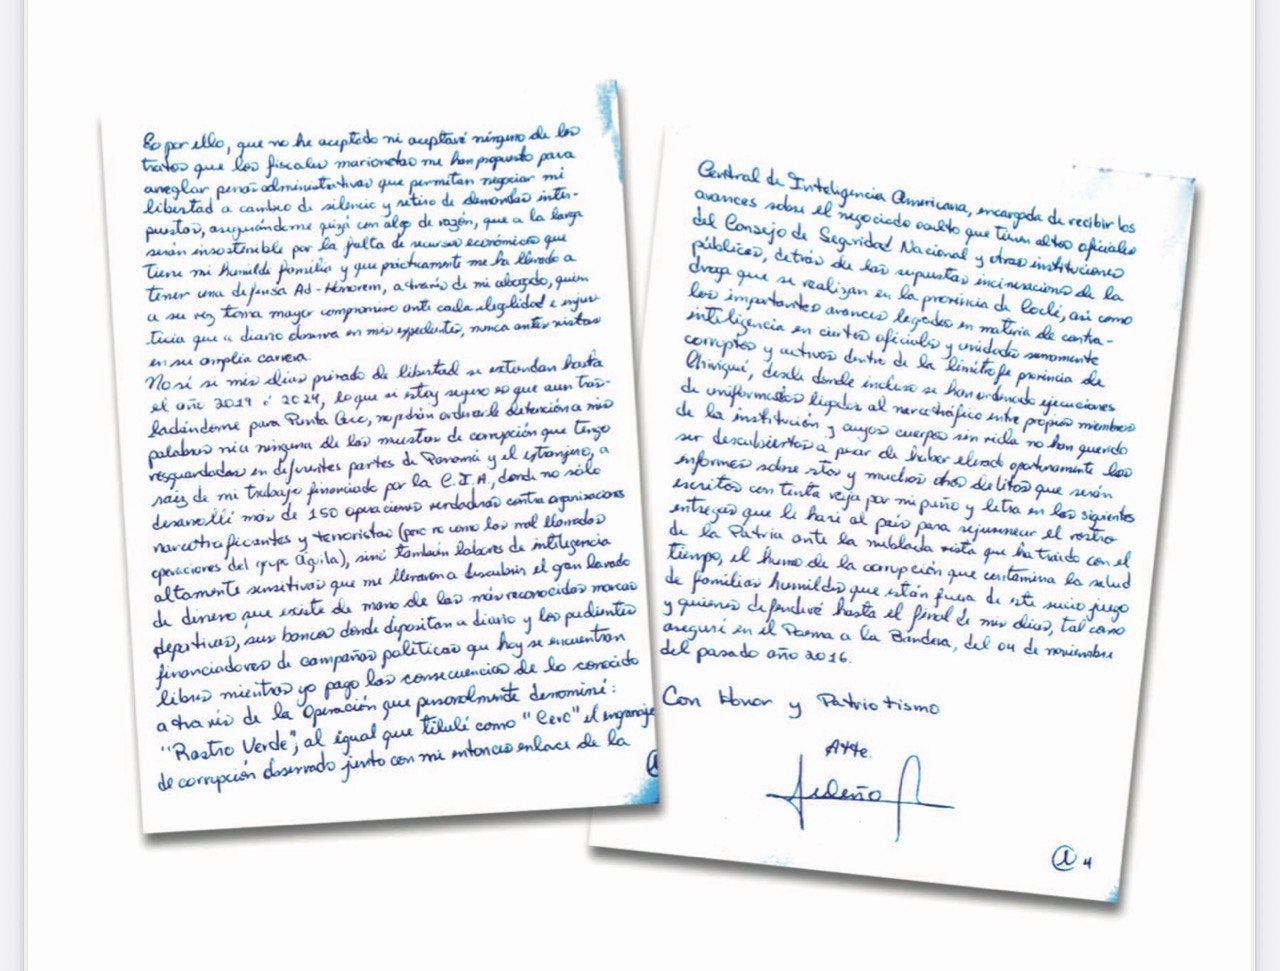 Es por ello, que no he aceptado ni aceptaré ninguno de los
tratos que los fiscales marionetas me han propuesto para
arreglar penas administrativas que permitan negociar mi
libertad a cambio de silencio y retiro de demandas inter-
puestas, asegurándome quizá con algo de razón, que a la larga
serán insostenible por la falta de recursos económicos que
tiene mi humilde familia y que prácticamente me ha llevado a
tener una defensa Ad-Honorem, a través de mi abogado, quien
a su vez toma mayor compromiso ante cada ilegalidad e injus-
ticia que a diario observa en mis expedientes, nunca antes vistas
en su amplia carrera.
No sé si mis días privado de libertad se extiendan hasta
el año 2019 ó 2024, lo que si estoy seguro es que aun tras-
ladándome para Punta Coco, no podrán ordenarle detención a mis
palabras ni a ninguna de las muestras de corrupción que tengo
resguardadas en diferentes partes de Panamá y el extranjero, a
raíz de mi trabajo financiado por la C.I.A, donde no sólo
desarrollé más de 150 operaciones verdaderas contra organizaciones
narcotraficantes y terroristas (pero no como las mal llamadas
operaciones del grupo Águila), sinó también labores de inteligencia
altamente sensitivas que me llevaron a descubrir el gran lavado
de dinero que existe de mano de las más reconocidas marcas
deportivas, sus bancos donde depositan a diario y los pudientes
financiadores de campañas políticas que hoy se encuentran
libres mientras yo pago las consecuencias de lo conocido
a través de la Operación que personalmente denominé:
"Rastro Verde", al igual que titulé como "Cero" el engranaje
de corrupción observado junto con mi entonces enlace de la
Central de Inteligencia Americana, encargada de recibir los
avances sobre el negociado oculto que tienen altos oficiales
del Consejo de Seguridad Nacional y otras instituciones
públicas, detrás de las supuestas incineraciones de la
droga que se realizan en la provincia de Coclé, así como
los importantes avances legados en materia de contra-
inteligencia en ciertos oficiales y unidades sumamente
corruptos y activos dentro de la limítrofe provincia de
Chiriquí, desde donde incluso se han ordenado ejecuciones
de uniformados ligados al narcotráfico entre propios miembros
de la institución y cuyos cuerpos sin vida no han querido
ser descubiertos a pesar de haber elevado oportunamente los
informes sobre estos y muchos otros delitos que serán
escritos con tinta roja por mi puño y letra en las siguientes
entregas que le haré al país para rejuvenecer el rostro
de la Patria ante la nublada vista que ha traído con el
tiempo, el humo de la corrupción que contamina la salud
de familias humildes que están fuera de este sucio juego
y quienes defenderé hasta el final de mis días, tal como
aseguré en el Poema a la Bandera, del 04 de noviembre
del pasado año 2016.
Con Honor y Patriotismo
Atte.
Jedeño
4